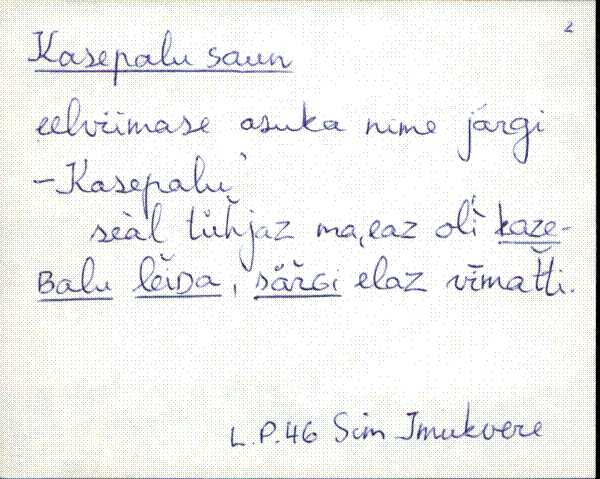 2
Kasepalu saun
eelviimase asuka nime järgi
- Kasepalu
seàl tǜȟjaz ma,eaz olì kaze-
Balu lěiDa, särGi elaz vīmat̆ti.
L.P.46 Sim Imukvere